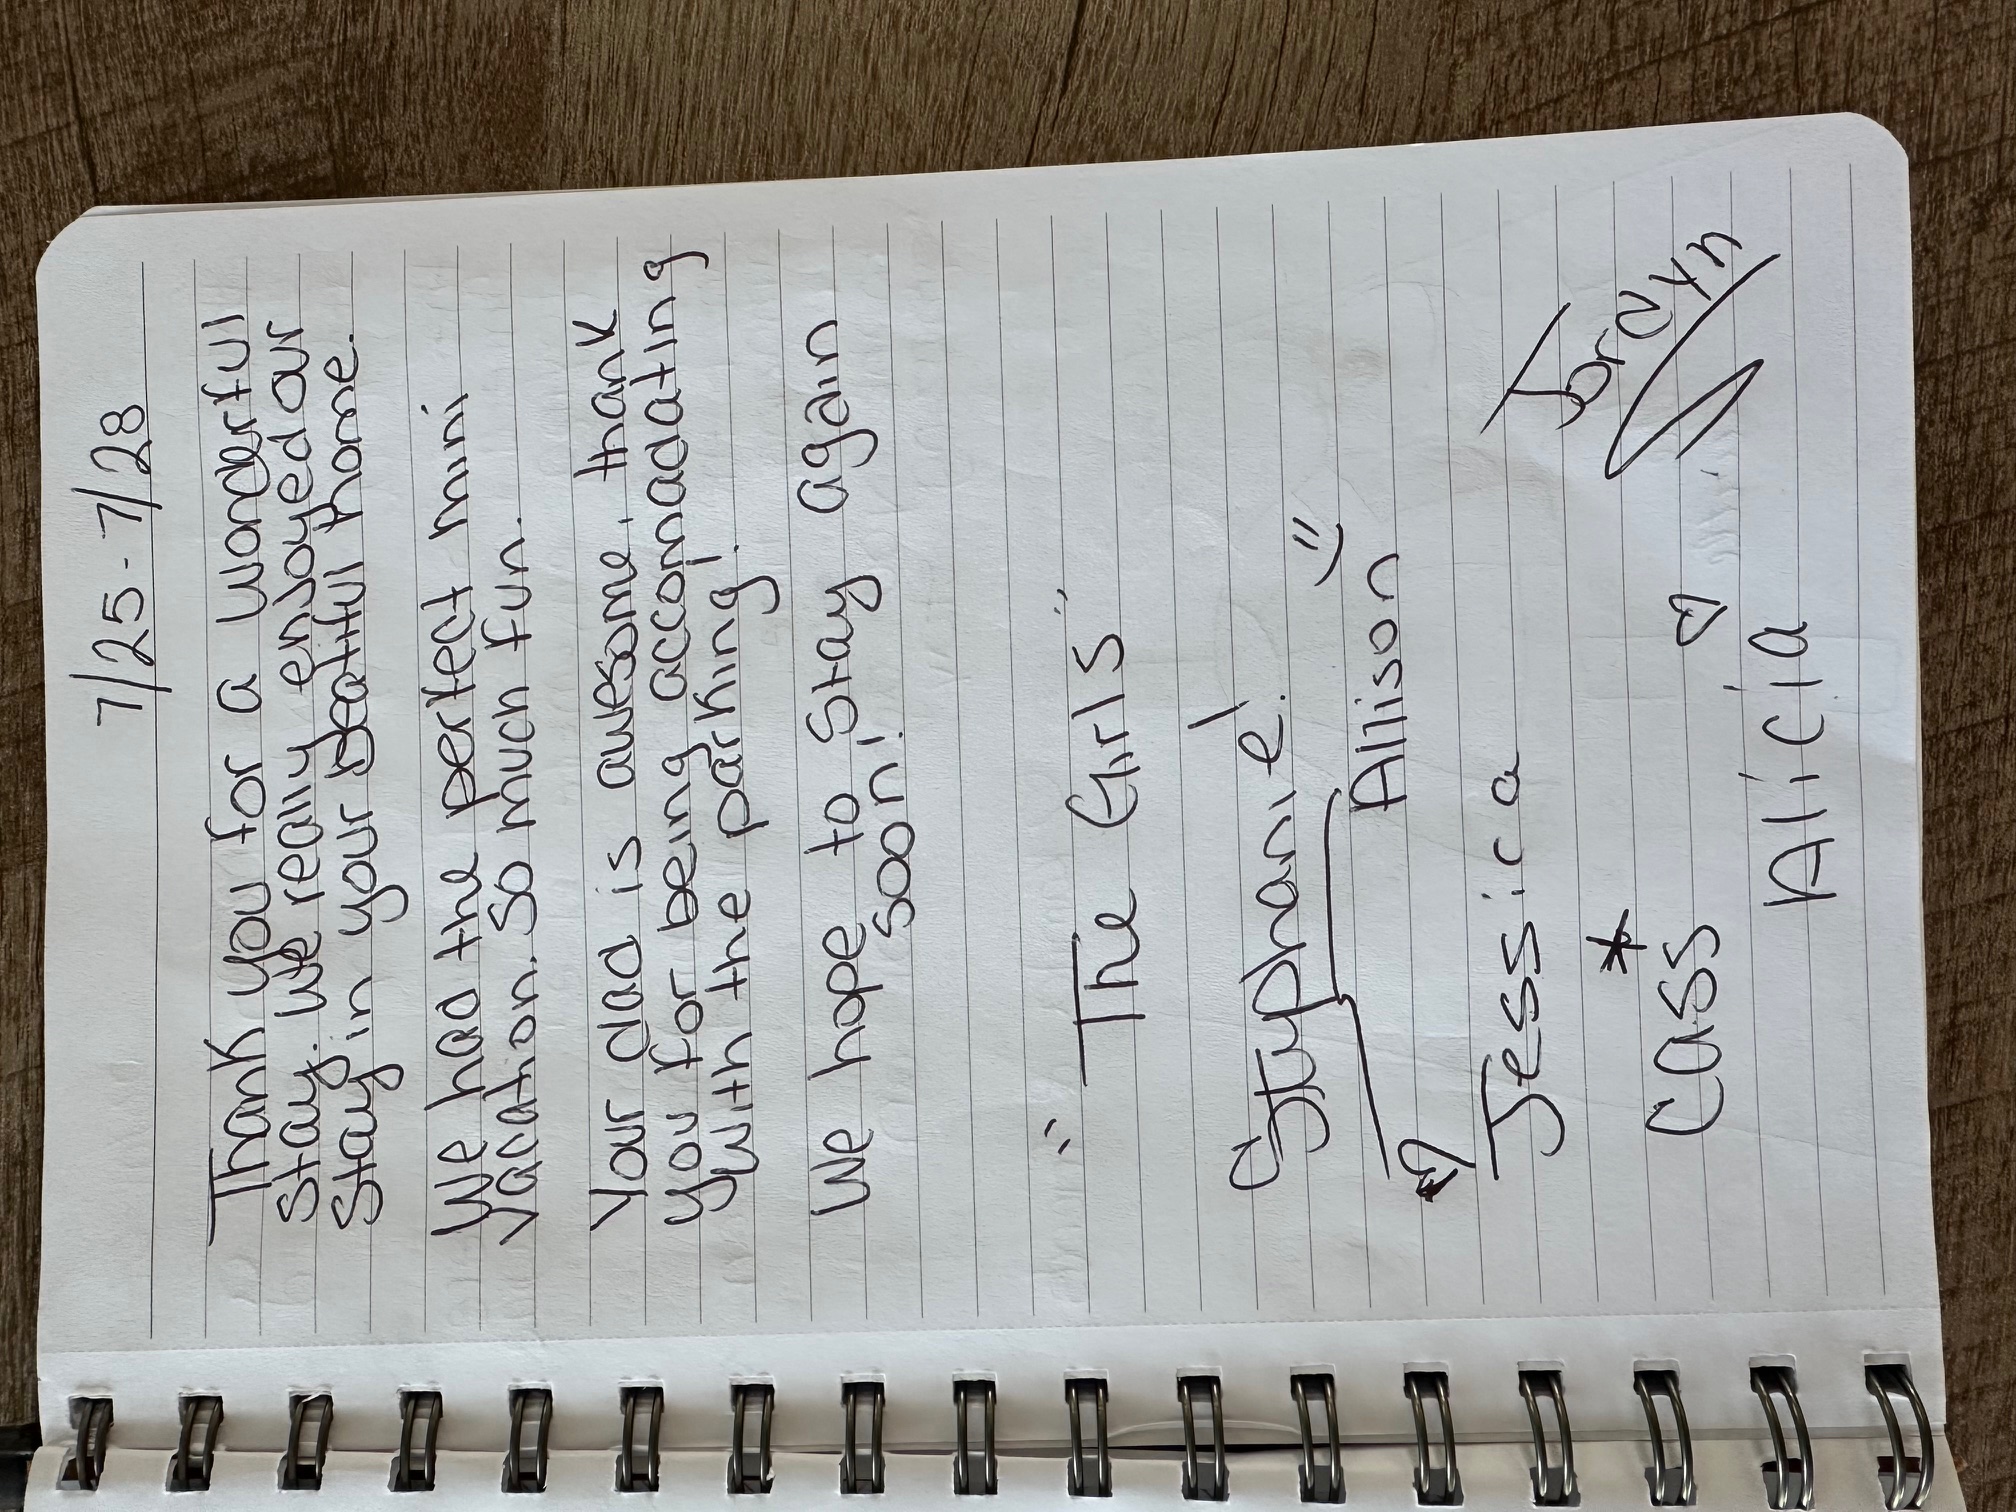 7/25 - 7/28
Thank you for a wonderful
stay. We really enjoyed our
stay in your beatiful home.
We had the perfect mini
vacation. So much fun.
Your dad is awesome, thank
you for being accomadating
with the parking!
We hope to stay again
soon!
"The Girls"
Stephanie!
Allison
Jessica
Cass
Alicia